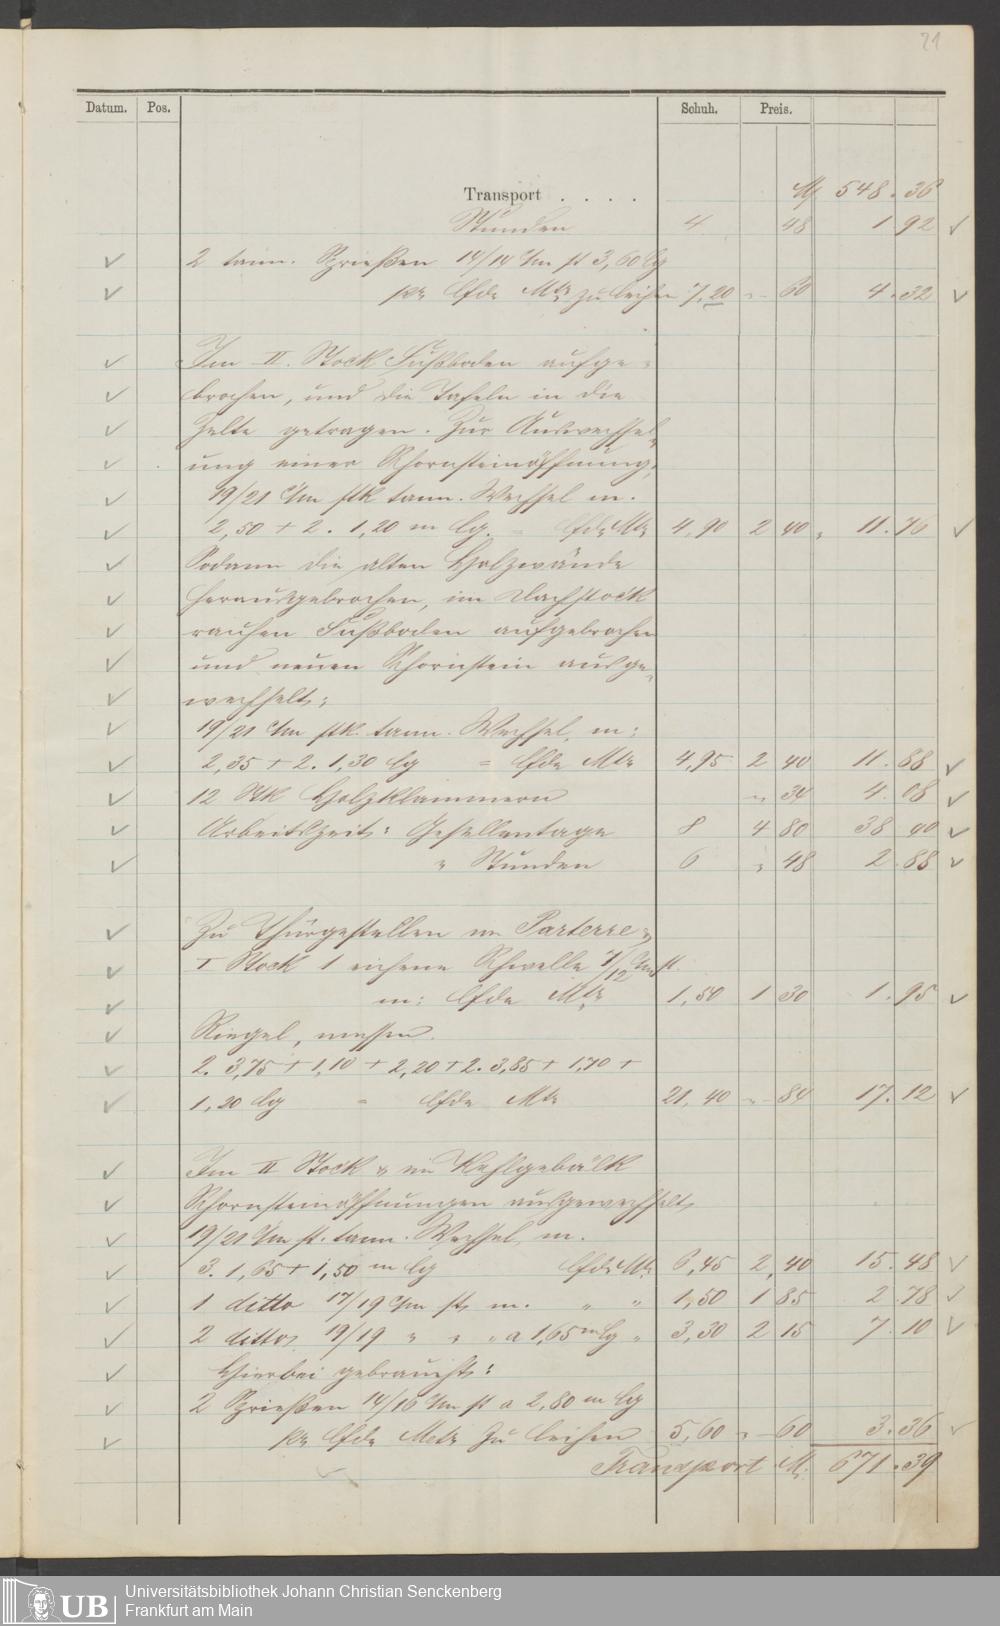 21
Datum. Pos. Schuh. Preis.
Transport . . . . M 548.36
Stunden 4 48 1.92
2 tann. Sprießen 14/14 c/m st 3,60 lg
pr lfde Mtr zu leihen 7,20 " 60 4.32
Im II. Stock Fußboden aufge-
brochen, und die Tafeln in die
Zelte getragen. Zur Auswechsel-
ung einer Schornsteinöffnung,
19/21 c/m stk tann. Wechsel m.
2,50 + 2. 1,20 m lg. = lfde Mtr 4,90 2 40 " 11.76
Sodann die alten Holzwände
herausgebrochen, im Dachstock
rauhen Fußboden aufgebrochen
und neuen Schornstein ausge-
wechselt;
19/21 c/m stk. tann. Wechsel, m:
2,35 + 2. 1,30 lg = lfde Mtr 4,95 2 40 11.88
12 Stk Holzklammern " 34 4.08
Arbeitszeit: Gesellentage 8 4 80 38 40
" Stunden 6 " 48 2.88
Zu Thürgestellen im Parterre &
I Stock 1 eichene Schwelle /12 c/m st.
m: lfde Mtr 1,50 1 30 1.95
Riegel, messen.
2. 3,75 + 1,10 + 2,20 + 2. 3,85 + 1,70 +
1,20 lg = lfde Mtr 21,40 " 84 17.12
Im II Stock & im Kehlgebälk
Schornsteinöffnungen ausgewechselt,
19/21 c/m st. tann. Wechsel, m.
3. 1,65 + 1,50 m lg lfde Mtr 6,45 2,40 15.48
1 ditto 17/19 c/m st, m. " " 1,50 1 85 2.78
2 ditto, 19/19 " " " a 1,65 m lg " 3,30 2 15 7.10
Hierbei gebraucht:
2 Sprießen 14/16 c/m st a 2,80 m lg
pr lfde Metr zu leihen 5,60 " 60 3.36
Transport M. 671.39
UB Universitätsbibliothek Johann Christian Senckenberg
Frankfurt am Main